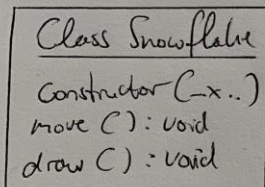 Class Snowflake
Constructor (_x..)
move () : void
draw () : void